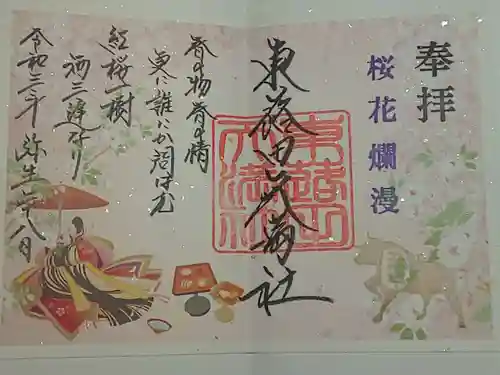 奉拝
桜花爛漫
東蕗田天満社
春の物春の情
更に誰にか問はむ
紅桜一樹
酒三遅なり
令和三年 弥生二十八日